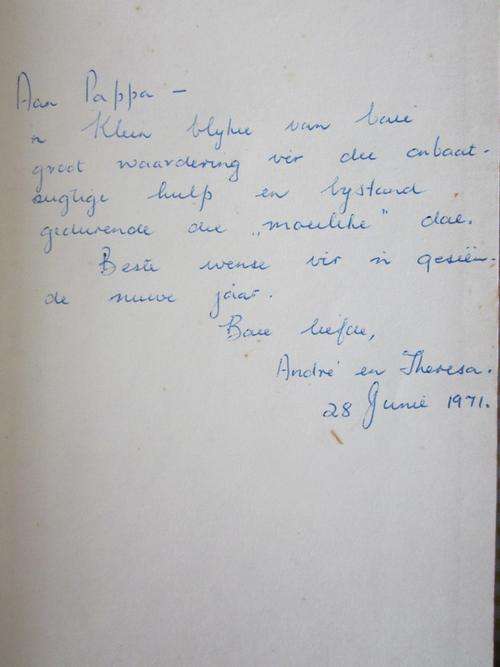 Aan Pappa –
'n Klein blykie van baie
groot waardering vir die onbaat-
sugtige hulp en bystand
gedurende die „moeilike” dae.
Beste wense vir 'n geseën-
de nuwe jaar.
Baie liefde,
André en Theresa.
28 Junie 1971.